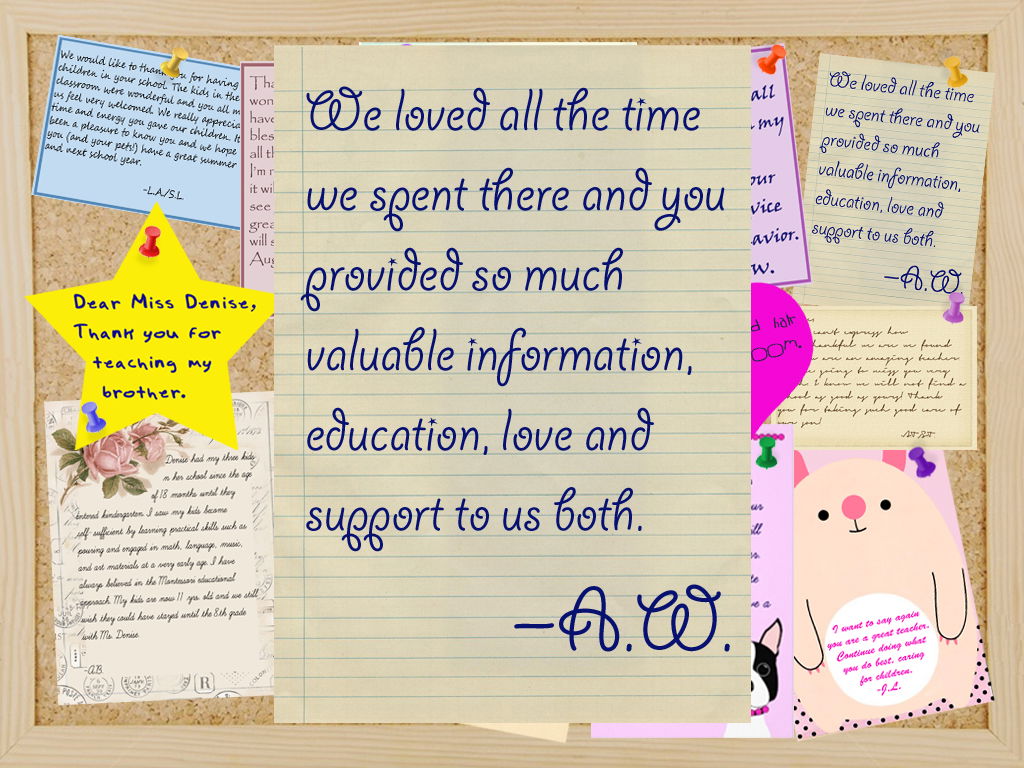 We would like to thank you for having
children in your school. The kids in the
classroom were wonderful and you all m
us feel very welcomed. We really apprecia
time and energy you gave our children. It
been a pleasure to know you and we hope
you (and your pets!) have a great summer
and next school year.
-L.A/S.L
Tha
won
have
bles
all th
I'm
it wil
see
grea
will s
Aug
Dear Miss Denise,
Thank you for
teaching my
brother.
Denise had my three kids
n her school since the age
of 18 months until they
entered kindergarten. I saw my kids become
self-sufficient by learning practical skills such as
pouring and engaged in math, language, music,
and art materials at a very early age. I have
always believed in the Montessori educational
approach. My kids are now 11 yrs. old and we still
wish they could have stayed until the 8th grade
with Ms. Denise.
-A.B.
We loved all the time
we spent there and you
provided so much
valuable information,
education, love and
support to us both.
-A.W.
all
my
our
vice
avior.
w.
We loved all the time
we spent there and you
provided so much
valuable information,
education, love and
support to us both.
-A.W.
d hair
OOM.
can't express how
thankful we are we found
are an amazing teacher
going to miss you very
I know we will not find a
school as good as yours! Thank
you for taking such good care of
our son!
ur
ll
s
te
e a
I want to say again
you are a great teacher.
Continue doing what
you do best, caring
for children.
-J.L.